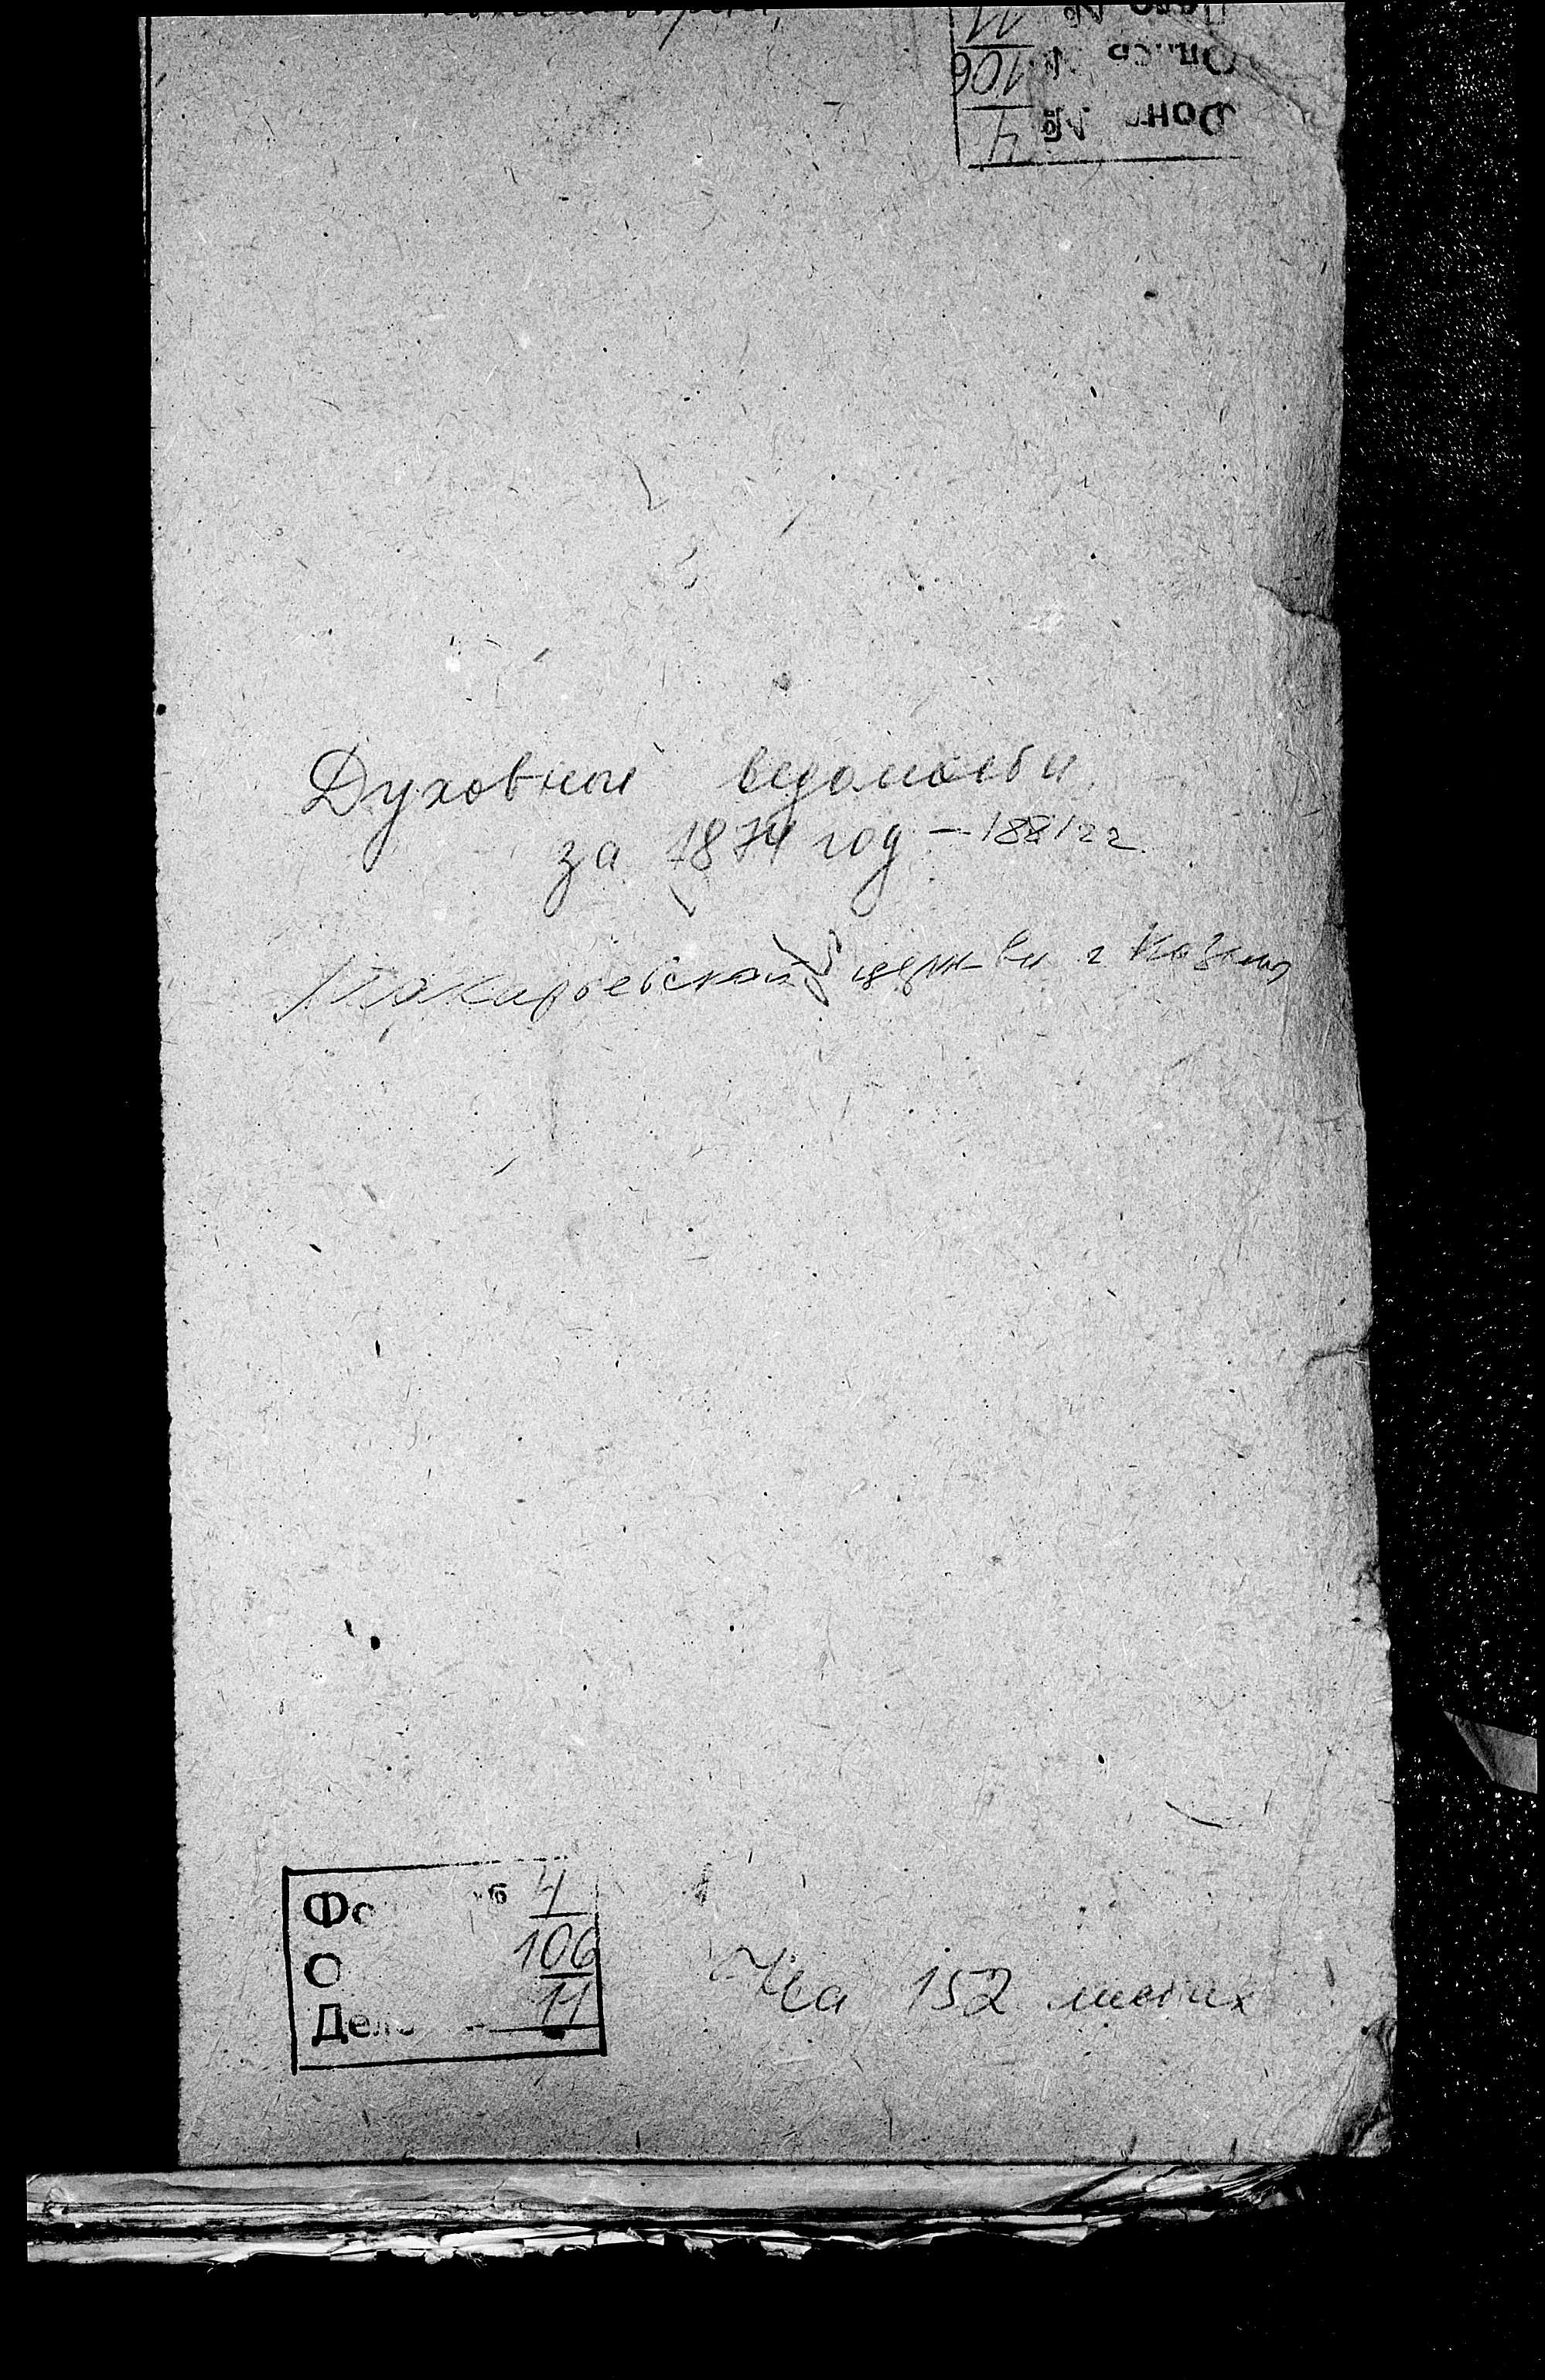 Дело № 11
Опись № 106
Фонд № 4
Духовные ведомости
за 1874 год – 1881 г г
Макарьевской церкви г Казани
Фо № 4
О 106
Дело 11
На 152 листах